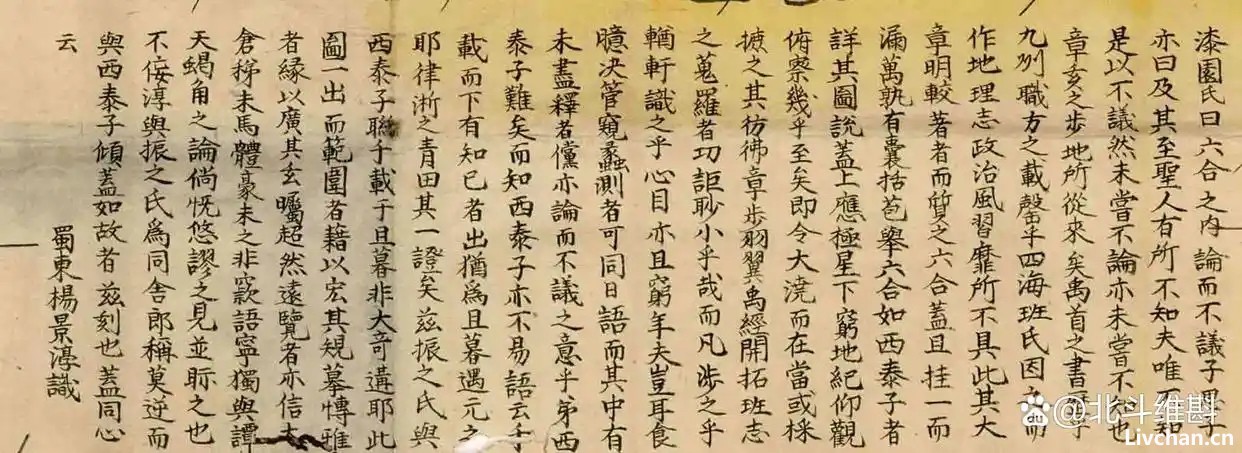 漆園氏曰六合之内論而不議子思子
亦曰及其至聖人有所不知夫唯不知
是以不議然未嘗不論亦未嘗不知也
章亥之步地所從來矣禹首之書乎
九州職方之載罄乎四海班氏因之而
作地理志政治風習靡所不具此其大
章明較著者而質之六合蓋且挂一而
漏萬孰有囊括苞舉六合如西泰子者
詳其圖說蓋上應極星下窮地紀仰觀
俯察幾乎至矣即令大澆而在當或採
摭之其彷彿章步羽翼禹經開拓班志
之蒐羅者功詎眇小乎哉而凡涉之乎
輶軒識之乎心目亦且窮年夫豈耳食
臆決管窺蠡測者可同日語而其中有
未盡釋者儻亦論而不議之意乎苐西
泰子難矣而知西泰子亦不易語云千
載而下有知已者出猶為旦暮遇元之
耶律淅之青田其一證矣茲振之氏與
西泰子聯千載于旦暮非大奇遘耶此
圖一出而範圍者藉以宏其規摹博雅
者緣以廣其玄矚超然遠覽者亦信太
倉稊未馬體豪末之非窾語寧獨與譚
天蝎角之論倘怳悠謬之見並眎之也
不佞淳與振之氏為同舍郎稱莫逆而
與西泰子傾蓋如故者茲刻也蓋同心
云
蜀東楊景淳識
北斗维斟
Livchan.cn